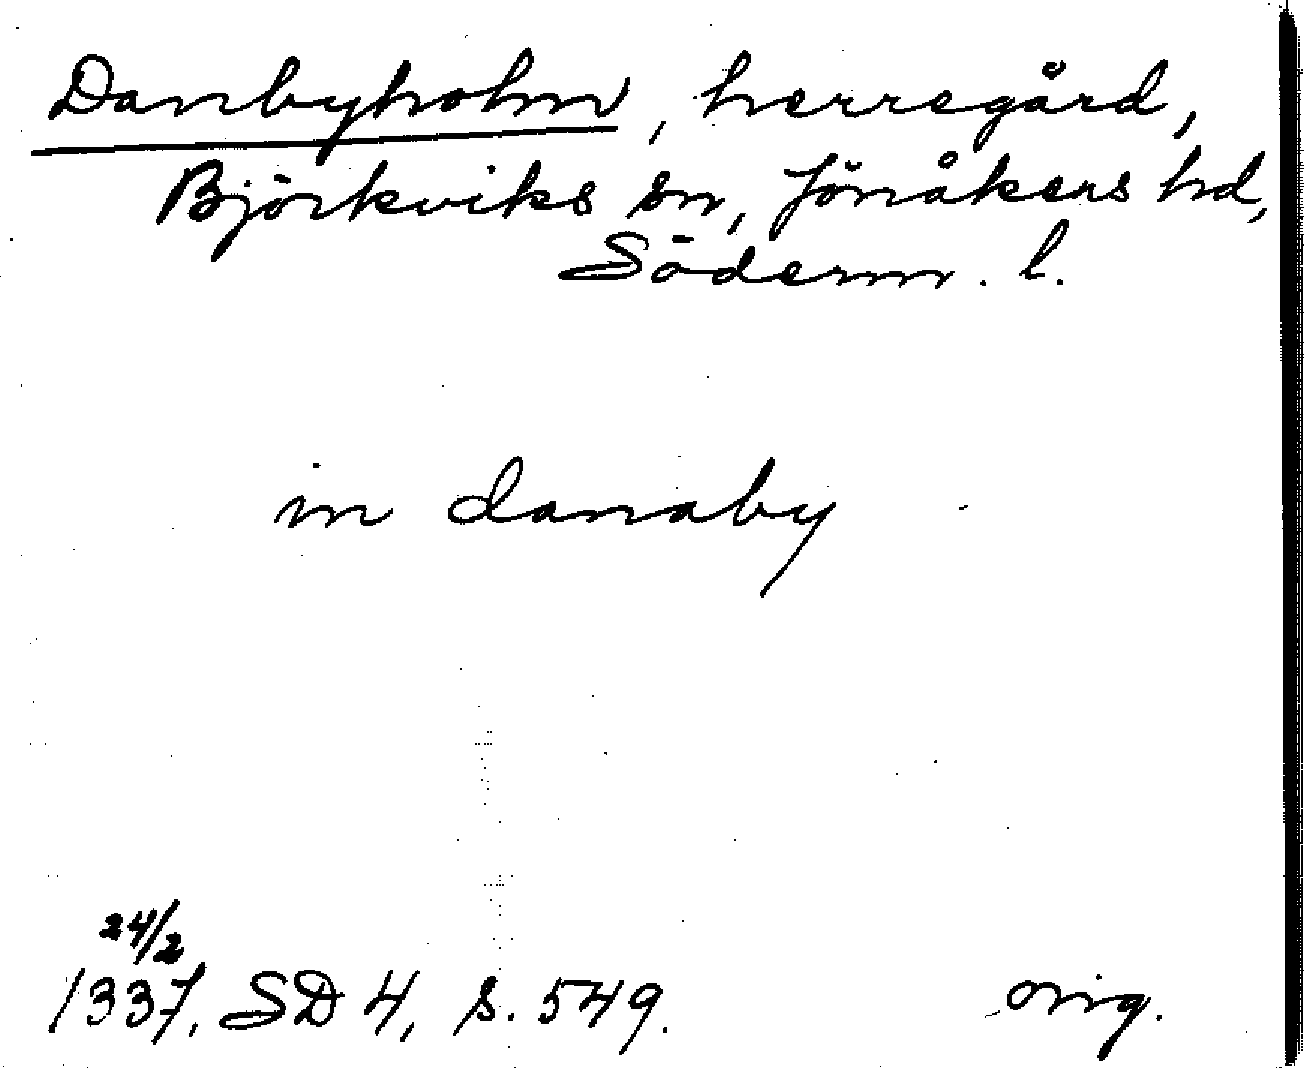 Danbyholm, herregård,
Björkviks sn, Jönåkers hd,
Söderm. l.
in danaby
24/2
1337, SD 4, s. 549. orig.